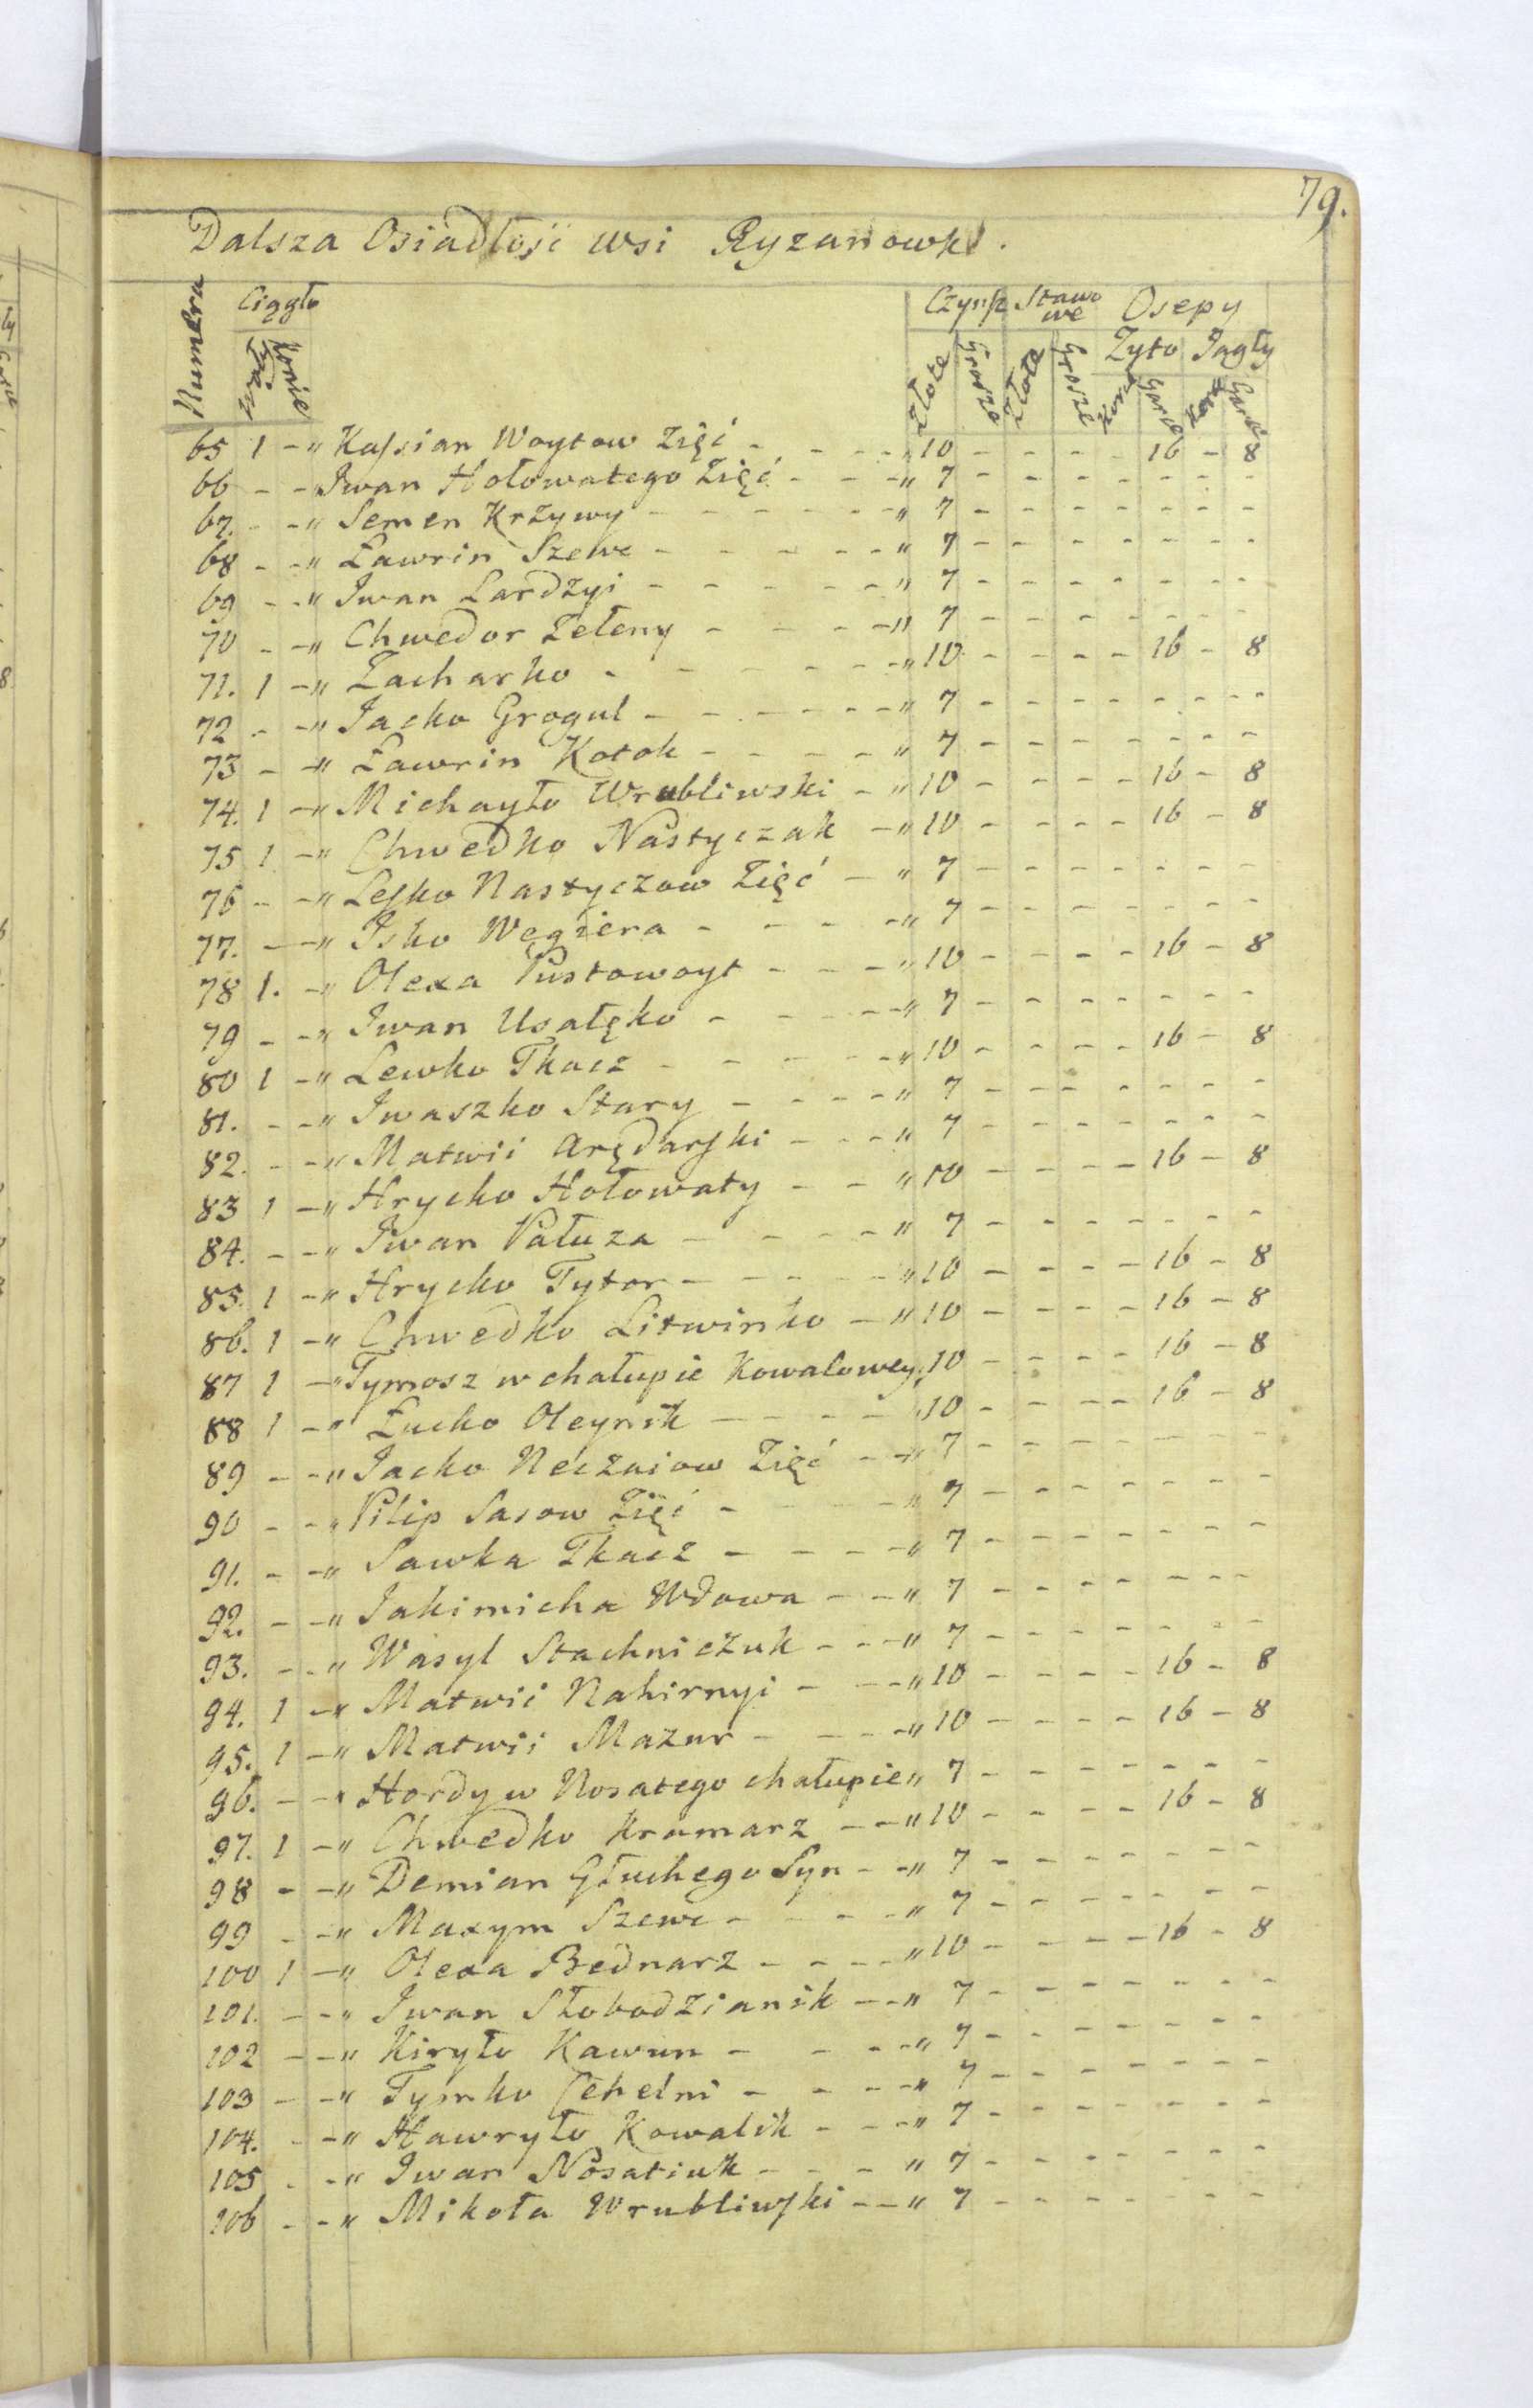 79.
Dalsza Osiadłość wsi Ryzanowki.
Numera Ciągło Czynsz Stawowe Osepy
Konie Złote Grosze Złote Grosze Zyto Jagły
Korc Garce Korc Garce
65 1 - " Kassian Woytow Zięć - - - - " 10 - - - - 16 - 8
66 - - Iwan Hołowatego Zięć - - - " 7 - - - - - - - -
67. - - " Semen Krzywy - - - - - - " 7 - - - - - - - -
68 - - " Ławrin Szewc - - - - - " 7 - - - - - - - -
69 - - " Iwan Lardzyi - - - - - " 7 - - - - - - - -
70 - - " Chwedor Zełeny - - - - " 7 - - - - - - - -
71. 1 - " Zacharko - - - - - - " 10 - - - - 16 - 8
72 - - " Jacko Grogul - - - - - - " 7 - - - - - - - -
73 - - " Ławrin Kotok - - - - - " 7 - - - - - - - -
74. 1 - " Michayło Wrubliwski - " 10 - - - - 16 - 8
75 1 - " Chwedko Nastyczak - " 10 - - - - 16 - 8
76 - - " Lesko Nastyczow Zięć - " 7 - - - - - - - -
77. - - " Isko Wegiera - - - - " 7 - - - - - - - -
78 1. - " Olexa Pustowoyt - - - " 10 - - - - 16 - 8
79 - - " Iwan Usałęko - - - - " 7 - - - - - - - -
80 1 - " Lewko Tkacz - - - - - " 10 - - - - 16 - 8
81. - - " Iwaszko Stary - - - - " 7 - - - - - - - -
82. - - " Matwii Arędarski - - - " 7 - - - - - - - -
83 1 - " Hrycko Hołowaty - - " 10 - - - - 16 - 8
84. - - " Iwan Pałuza - - - - " 7 - - - - - - - -
85. 1 - " Hrycko Tytor - - - - - " 10 - - - - 16 - 8
86. 1 - " Chwedko Litwinko - " 10 - - - - 16 - 8
87 1 - " Tymosz w chałupie Kowalowey " 10 - - - - 16 - 8
88 1 - " Łucko Oleynik - - - - " 10 - - - - 16 - 8
89 - - " Jacko Neczaiow Zięć - - " 7 - - - - - - - -
90 - - " Pilip Sasow Zięć - - - - " 7 - - - - - - - -
91. - - " Sawka Tkacz - - - - " 7 - - - - - - - -
92. - - " Jakimicha Wdowa - - " 7 - - - - - - - -
93. - - " Wasyl Stachniczuk - - - " 7 - - - - - - - -
94. 1 - " Matwii Nahirnyi - - - " 10 - - - - 16 - 8
95. 1 - " Matwii Mazur - - - - " 10 - - - - 16 - 8
96. - - " Hordy w Nosatego chałupie " 7 - - - - - - - -
97. 1 - " Chwedko Kramarz - - " 10 - - - - 16 - 8
98 - - " Demian Głuchego Syn - - " 7 - - - - - - - -
99 - - " Maxym Szewc - - - - " 7 - - - - - - - -
100 1 - " Olexa Bednarz - - - - " 10 - - - - 16 - 8
101. - - " Iwan Słobodzianik - - " 7 - - - - - - - -
102 - - " Kiryło Kawun - - - - " 7 - - - - - - - -
103 - - " Tymko Cehelni - - - - " 7 - - - - - - - -
104. - - " Hawryło Kowalik - - - " 7 - - - - - - - -
105 - - " Iwan Nosatiuk - - - " 7 - - - - - - - -
106 - - " Mikoła Wrubliwski - - " 7 - - - - - - - -